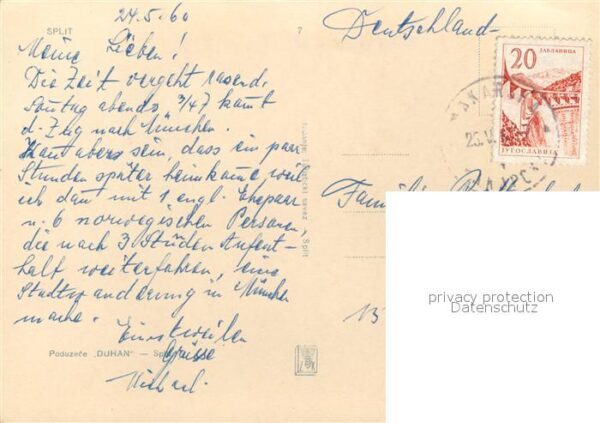 SPLIT
7
24.5.60
Meine Lieben!
Die Zeit vergeht rasend.
Sonntag abends 3/47 kommt
d. Zug nach München.
Kann aber sein, dass ein paar
Stunden später heimkomme, weil
ich dann mit 1 engl. Ehepaar
u. 6 norwegischen Personen,
die nach 3 Stunden Aufent-
halt weiterfahren, eine
Stadtwanderung in München
mache.
Einstweilen
Grüsse
Michael.
Poduzeće „DUHAN" —
savez, Split
Deutschland
20
JABLANICA
JUGOSLAVIJA
MAKARSKA
Familie
13
privacy protection
Datenschutz